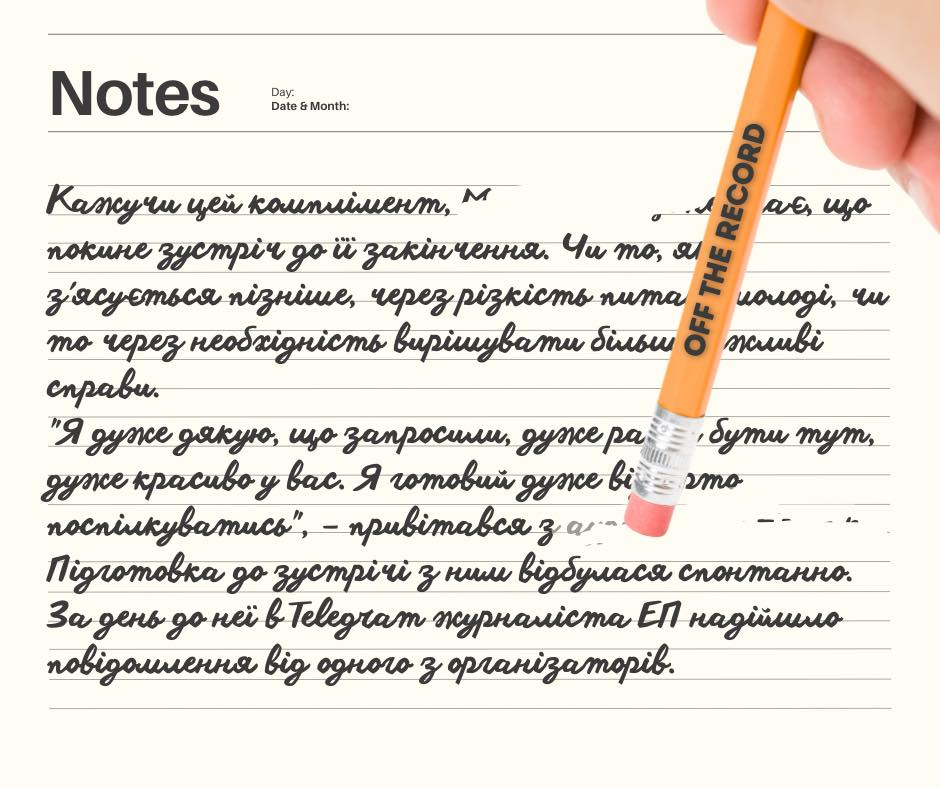 Notes
Day:
Date & Month:
OFF THE RECORD
Кажучи цей комплімент, що
покине зустріч до її закінчення. Чи то,
з'ясується пізніше, через різкість молоді, чи
то через необхідність вирішувати
справи.
"Я дуже дякую, що запросили, дуже бути тут,
дуже красиво у вас. Я готовий дуже
поспілкуватись", – привітався з
Підготовка до зустрічі з ним відбулася спонтанно.
За день до неї в Telegram журналіста ЕП надійшло
повідомлення від одного з організаторів.